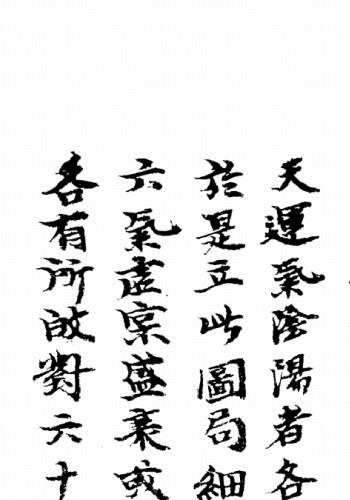 天運氣陰陽者各
於是立此圖局細
六氣虛實盛衰或
各有所政對六十